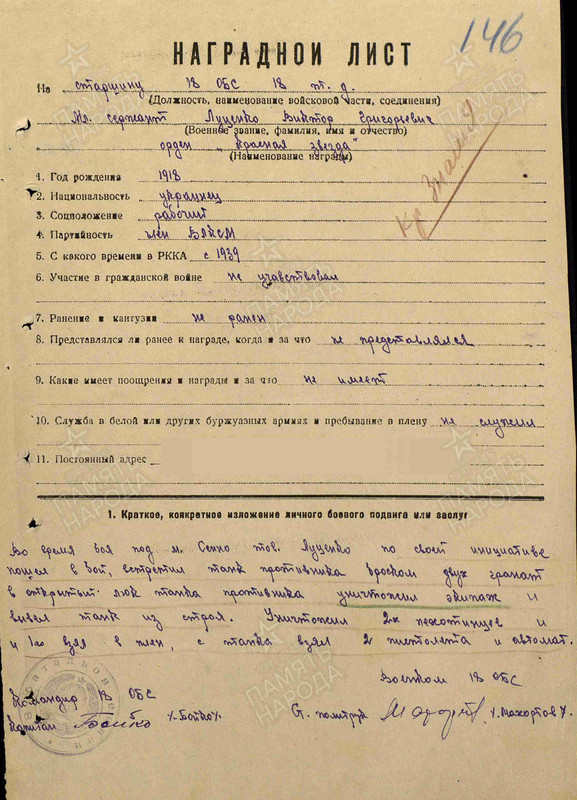 146
НАГРАДНОЙ ЛИСТ
На старшину 18 ОБС 18 т. д.
(Должность, наименование войсковой части, соединения)
Мл. сержант Луценко Виктор Григорьевич
(Военное звание, фамилия, имя и отчество)
орден „Красная звезда"
(Наименование награды)
Кр Знамя
1. Год рождения 1918
2. Национальность украинец
3. Соцположение рабочий
4. Партийность член ВЛКСМ
5. С какого времени в РККА с 1939
6. Участие в гражданской войне не учавствовал
7. Ранение и кантузии не ранен
8. Представлялся ли ранее к награде, когда и за что не представлялся
9. Какие имеет поощрения и награды и за что не имеет
10. Служба в белой или других буржуазных армиях и пребывание в плену не служил
11. Постоянный адрес
1. Краткое, конкретное изложение личного боевого подвига или заслуг
Во время боя под м. Сенно тов. Луценко по своей инициативе
пошел в бой, встретил танк противника броском двух гранат
в открытый люк танка противника уничтожил экипаж и
вывел танк из строя. Уничтожил 2х пехотинцев и
и 1го взял в плен, с танка взял 2 пистолета и автомат.
Командир 18 ОБС
Капитан Бойко
Военком 18 ОБС
Ст. политрук /Махортов/
ПАМЯТЬ НАРОДА